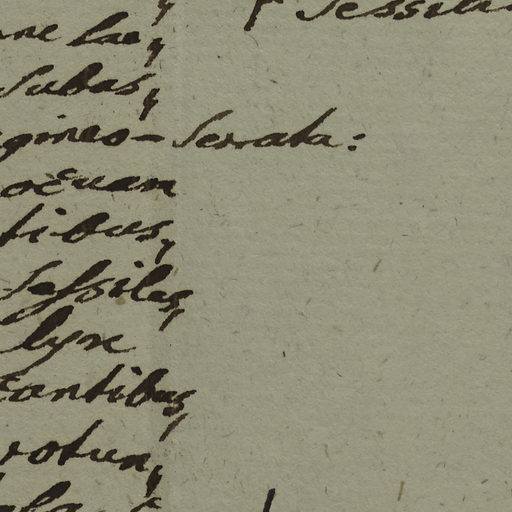 sessili
ne lae,
subas,
gineo-serrata:
ocuam
tibus,
sessiles,
lyre
cantibus,
rotun,